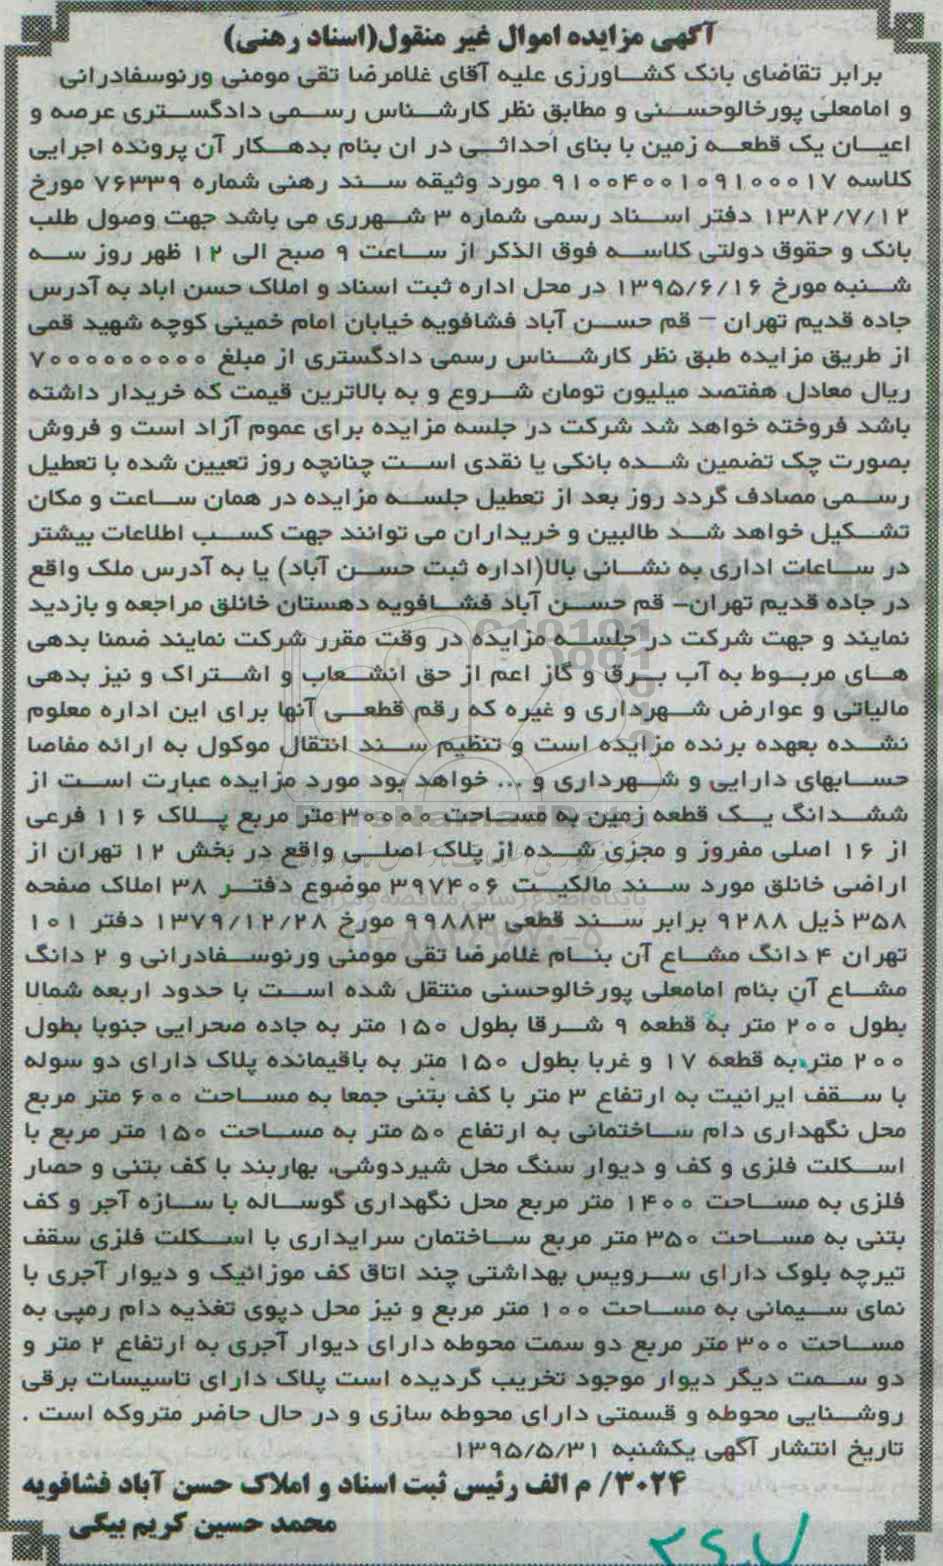 آگهی مزایده اموال غیر منقول(اسناد رهنی)
برابر تقاضای بانک کشاورزی علیه آقای غلامرضا تقی مومنی ورنوسفادرانی
و امامعلی پورخالوحسنی و مطابق نظر کارشناس رسمی دادگستری عرصه و
اعیان یک قطعه زمین با بنای احداثی در ان بنام بدهکار آن پرونده اجرایی
کلاسه ۹۱۰۰۴۰۰۱۰۹۱۰۰۰۱۷ مورد وثیقه سند رهنی شماره ۷۶۳۳۹ مورخ
۱۳۸۲/۷/۱۲ دفتر اسناد رسمی شماره ۳ شهرری می باشد جهت وصول طلب
بانک و حقوق دولتی کلاسه فوق الذکر از ساعت ۹ صبح الی ۱۲ ظهر روز سه
شنبه مورخ ۱۳۹۵/۶/۱۶ در محل اداره ثبت اسناد و املاک حسن اباد به آدرس
جاده قدیم تهران – قم حسن آباد فشافویه خیابان امام خمینی کوچه شهید قمی
از طریق مزایده طبق نظر کارشناس رسمی دادگستری از مبلغ ۷۰۰۰۰۰۰۰۰۰
ریال معادل هفتصد میلیون تومان شروع و به بالاترین قیمت که خریدار داشته
باشد فروخته خواهد شد شرکت در جلسه مزایده برای عموم آزاد است و فروش
بصورت چک تضمین شده بانکی یا نقدی است چنانچه روز تعیین شده با تعطیل
رسمی مصادف گردد روز بعد از تعطیل جلسه مزایده در همان ساعت و مکان
تشکیل خواهد شد طالبین و خریداران می توانند جهت کسب اطلاعات بیشتر
در ساعات اداری به نشانی بالا(اداره ثبت حسن آباد) یا به آدرس ملک واقع
در جاده قدیم تهران– قم حسن آباد فشافویه دهستان خانلق مراجعه و بازدید
نمایند و جهت شرکت در جلسه مزایده در وقت مقرر شرکت نمایند ضمنا بدهی
های مربوط به آب برق و گاز اعم از حق انشعاب و اشتراک و نیز بدهی
مالیاتی و عوارض شهرداری و غیره که رقم قطعی آنها برای این اداره معلوم
نشده بعهده برنده مزایده است و تنظیم سند انتقال موکول به ارائه مفاصا
حسابهای دارایی و شهرداری و ... خواهد بود مورد مزایده عبارت است از
ششدانگ یک قطعه زمین به مساحت ۳۰۰۰۰ متر مربع پلاک ۱۱۶ فرعی
از ۱۶ اصلی مفروز و مجزی شده از پلاک اصلی واقع در بخش ۱۲ تهران از
اراضی خانلق مورد سند مالکیت ۳۹۷۴۰۶ موضوع دفتر ۳۸ املاک صفحه
۳۵۸ ذیل ۹۲۸۸ برابر سند قطعی ۹۹۸۸۳ مورخ ۱۳۷۹/۱۲/۲۸ دفتر ۱۰۱
تهران ۴ دانگ مشاع آن بنام غلامرضا تقی مومنی ورنوسفادرانی و ۲ دانگ
مشاع آن بنام امامعلی پورخالوحسنی منتقل شده است با حدود اربعه شمالا
بطول ۲۰۰ متر به قطعه ۹ شرقا بطول ۱۵۰ متر به جاده صحرایی جنوبا بطول
۲۰۰ متر به قطعه ۱۷ و غربا بطول ۱۵۰ متر به باقیمانده پلاک دارای دو سوله
با سقف ایرانیت به ارتفاع ۳ متر با کف بتنی جمعا به مساحت ۶۰۰ متر مربع
محل نگهداری دام ساختمانی به ارتفاع ۵۰ متر به مساحت ۱۵۰ متر مربع با
اسکلت فلزی و کف و دیوار سنگ محل شیردوشی، بهاربند با کف بتنی و حصار
فلزی به مساحت ۱۴۰۰ متر مربع محل نگهداری گوساله با سازه آجر و کف
بتنی به مساحت ۳۵۰ متر مربع ساختمان سرایداری با اسکلت فلزی سقف
تیرچه بلوک دارای سرویس بهداشتی چند اتاق کف موزائیک و دیوار آجری با
نمای سیمانی به مساحت ۱۰۰ متر مربع و نیز محل دپوی تغذیه دام رمپی به
مساحت ۳۰۰ متر مربع دو سمت محوطه دارای دیوار آجری به ارتفاع ۲ متر و
دو سمت دیگر دیوار موجود تخریب گردیده است پلاک دارای تاسیسات برقی
روشنایی محوطه و قسمتی دارای محوطه سازی و در حال حاضر متروکه است .
تاریخ انتشار آگهی یکشنبه ۱۳۹۵/۵/۳۱
۳۰۲۴/ م الف رئیس ثبت اسناد و املاک حسن آباد فشافویه
محمد حسین کریم بیگی
ParsNamadData